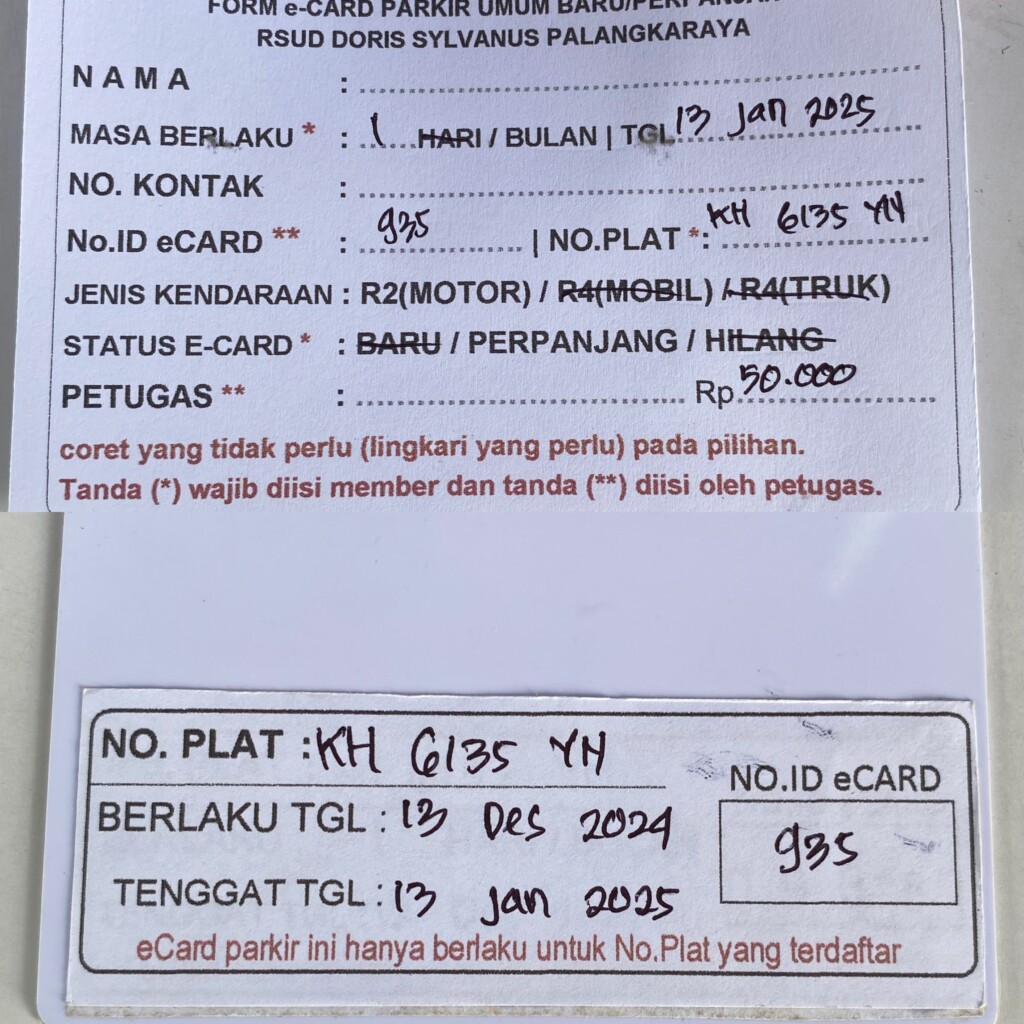 FORM e-CARD PARKIR UMUM BARU/PERPANJAN
RSUD DORIS SYLVANUS PALANGKARAYA
NAMA :
MASA BERLAKU * : 1 HARI / BULAN | TGL 13 Jan 2025
NO. KONTAK :
No.ID eCARD ** : 935 | NO.PLAT *: KH 6135 YH
JENIS KENDARAAN : R2(MOTOR) / R4(MOBIL) / R4(TRUK)
STATUS E-CARD * : BARU / PERPANJANG / HILANG
PETUGAS ** : Rp 50.000
coret yang tidak perlu (lingkari yang perlu) pada pilihan.
Tanda (*) wajib diisi member dan tanda (**) diisi oleh petugas.
NO. PLAT : KH 6135 YH
NO.ID eCARD
935
BERLAKU TGL : 13 Des 2024
TENGGAT TGL : 13 Jan 2025
eCard parkir ini hanya berlaku untuk No.Plat yang terdaftar